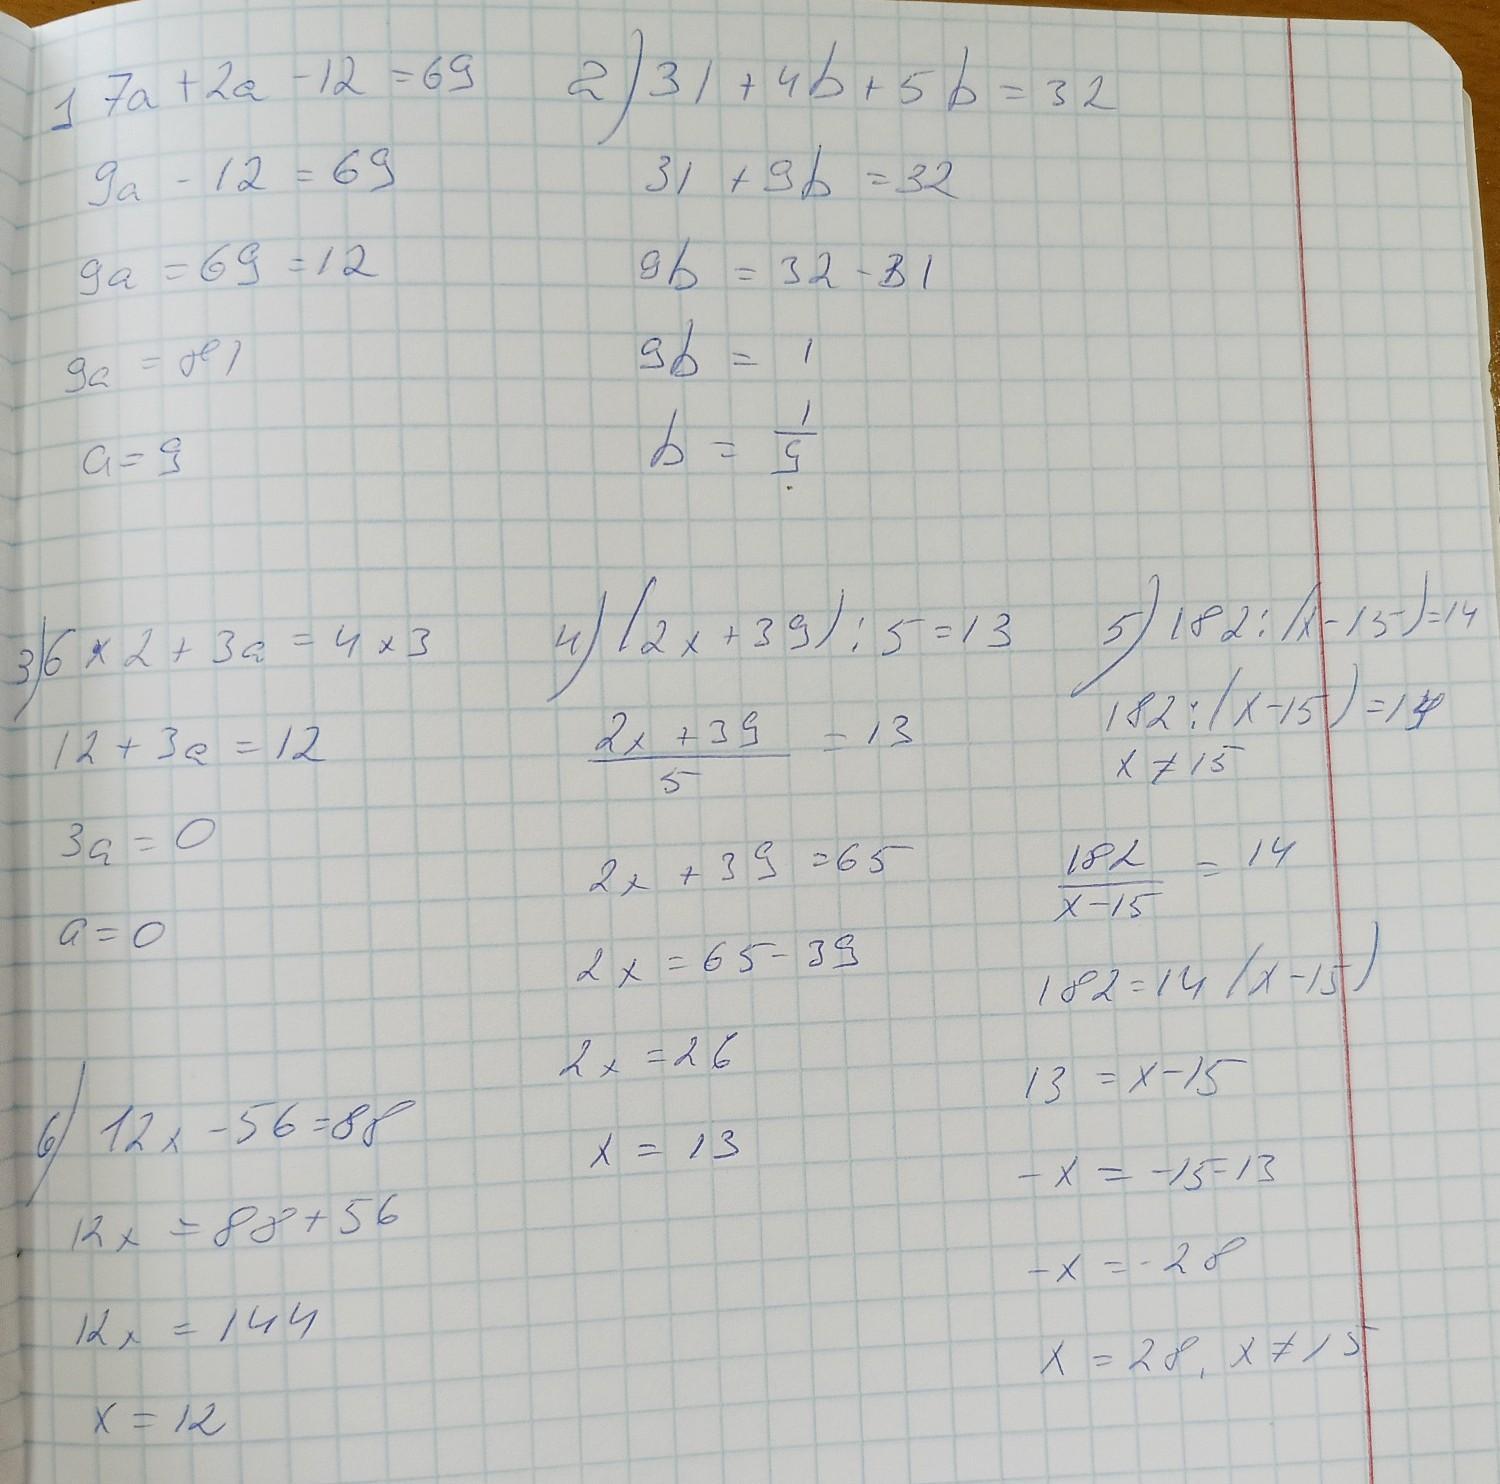 1 7a + 2a - 12 = 69
9a - 12 = 69
9a = 69 = 12
9a = 81
a = 9
2) 31 + 4b + 5b = 32
31 + 9b = 32
9b = 32 - 31
9b = 1
b = 1/9
3) 6 x 2 + 3a = 4 x 3
12 + 3a = 12
3a = 0
a = 0
4) (2x + 39) : 5 = 13
(2x + 39)/5 = 13
2x + 39 = 65
2x = 65 - 39
2x = 26
x = 13
5) 182 : (x - 15) = 14
182 : (x - 15) = 14
x ≠ 15
182/(x - 15) = 14
182 = 14 (x - 15)
13 = x - 15
-x = -15-13
-x = -28
x = 28, x ≠ 15
6) 12x - 56 = 88
12x = 88 + 56
12x = 144
x = 12